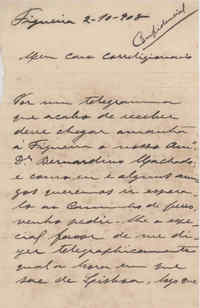 Figueira 2-10-908
Confidencial
Meu caro correligionario
Por um telegramma
que acabo de receber
deve chegar amanhã
á Figueira o nosso Am.
Dr Bernardino Machado,
e como eu e alguns ami-
gos queremos ir espera-
lo ao Caminho de ferro
venho pedir-lhe o espe-
cial favor de me di-
zer telegraphicamente
qual a hora em que
sae de Lisboa, logo que